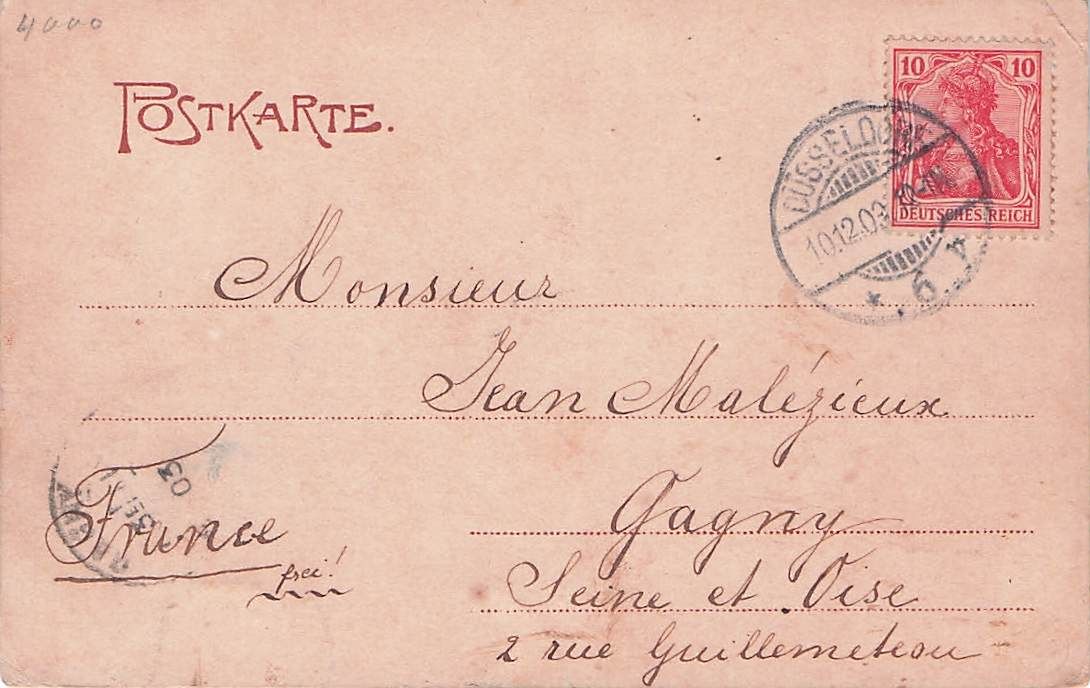 4000
POSTKARTE.
10 10
DEUTSCHES REICH
DÜSSELDORF
10.12.03
* 6 A
Monsieur
Jean Malézieux
Gagny
Seine et Oise
2 rue Guillemeteau
France
frei!
03